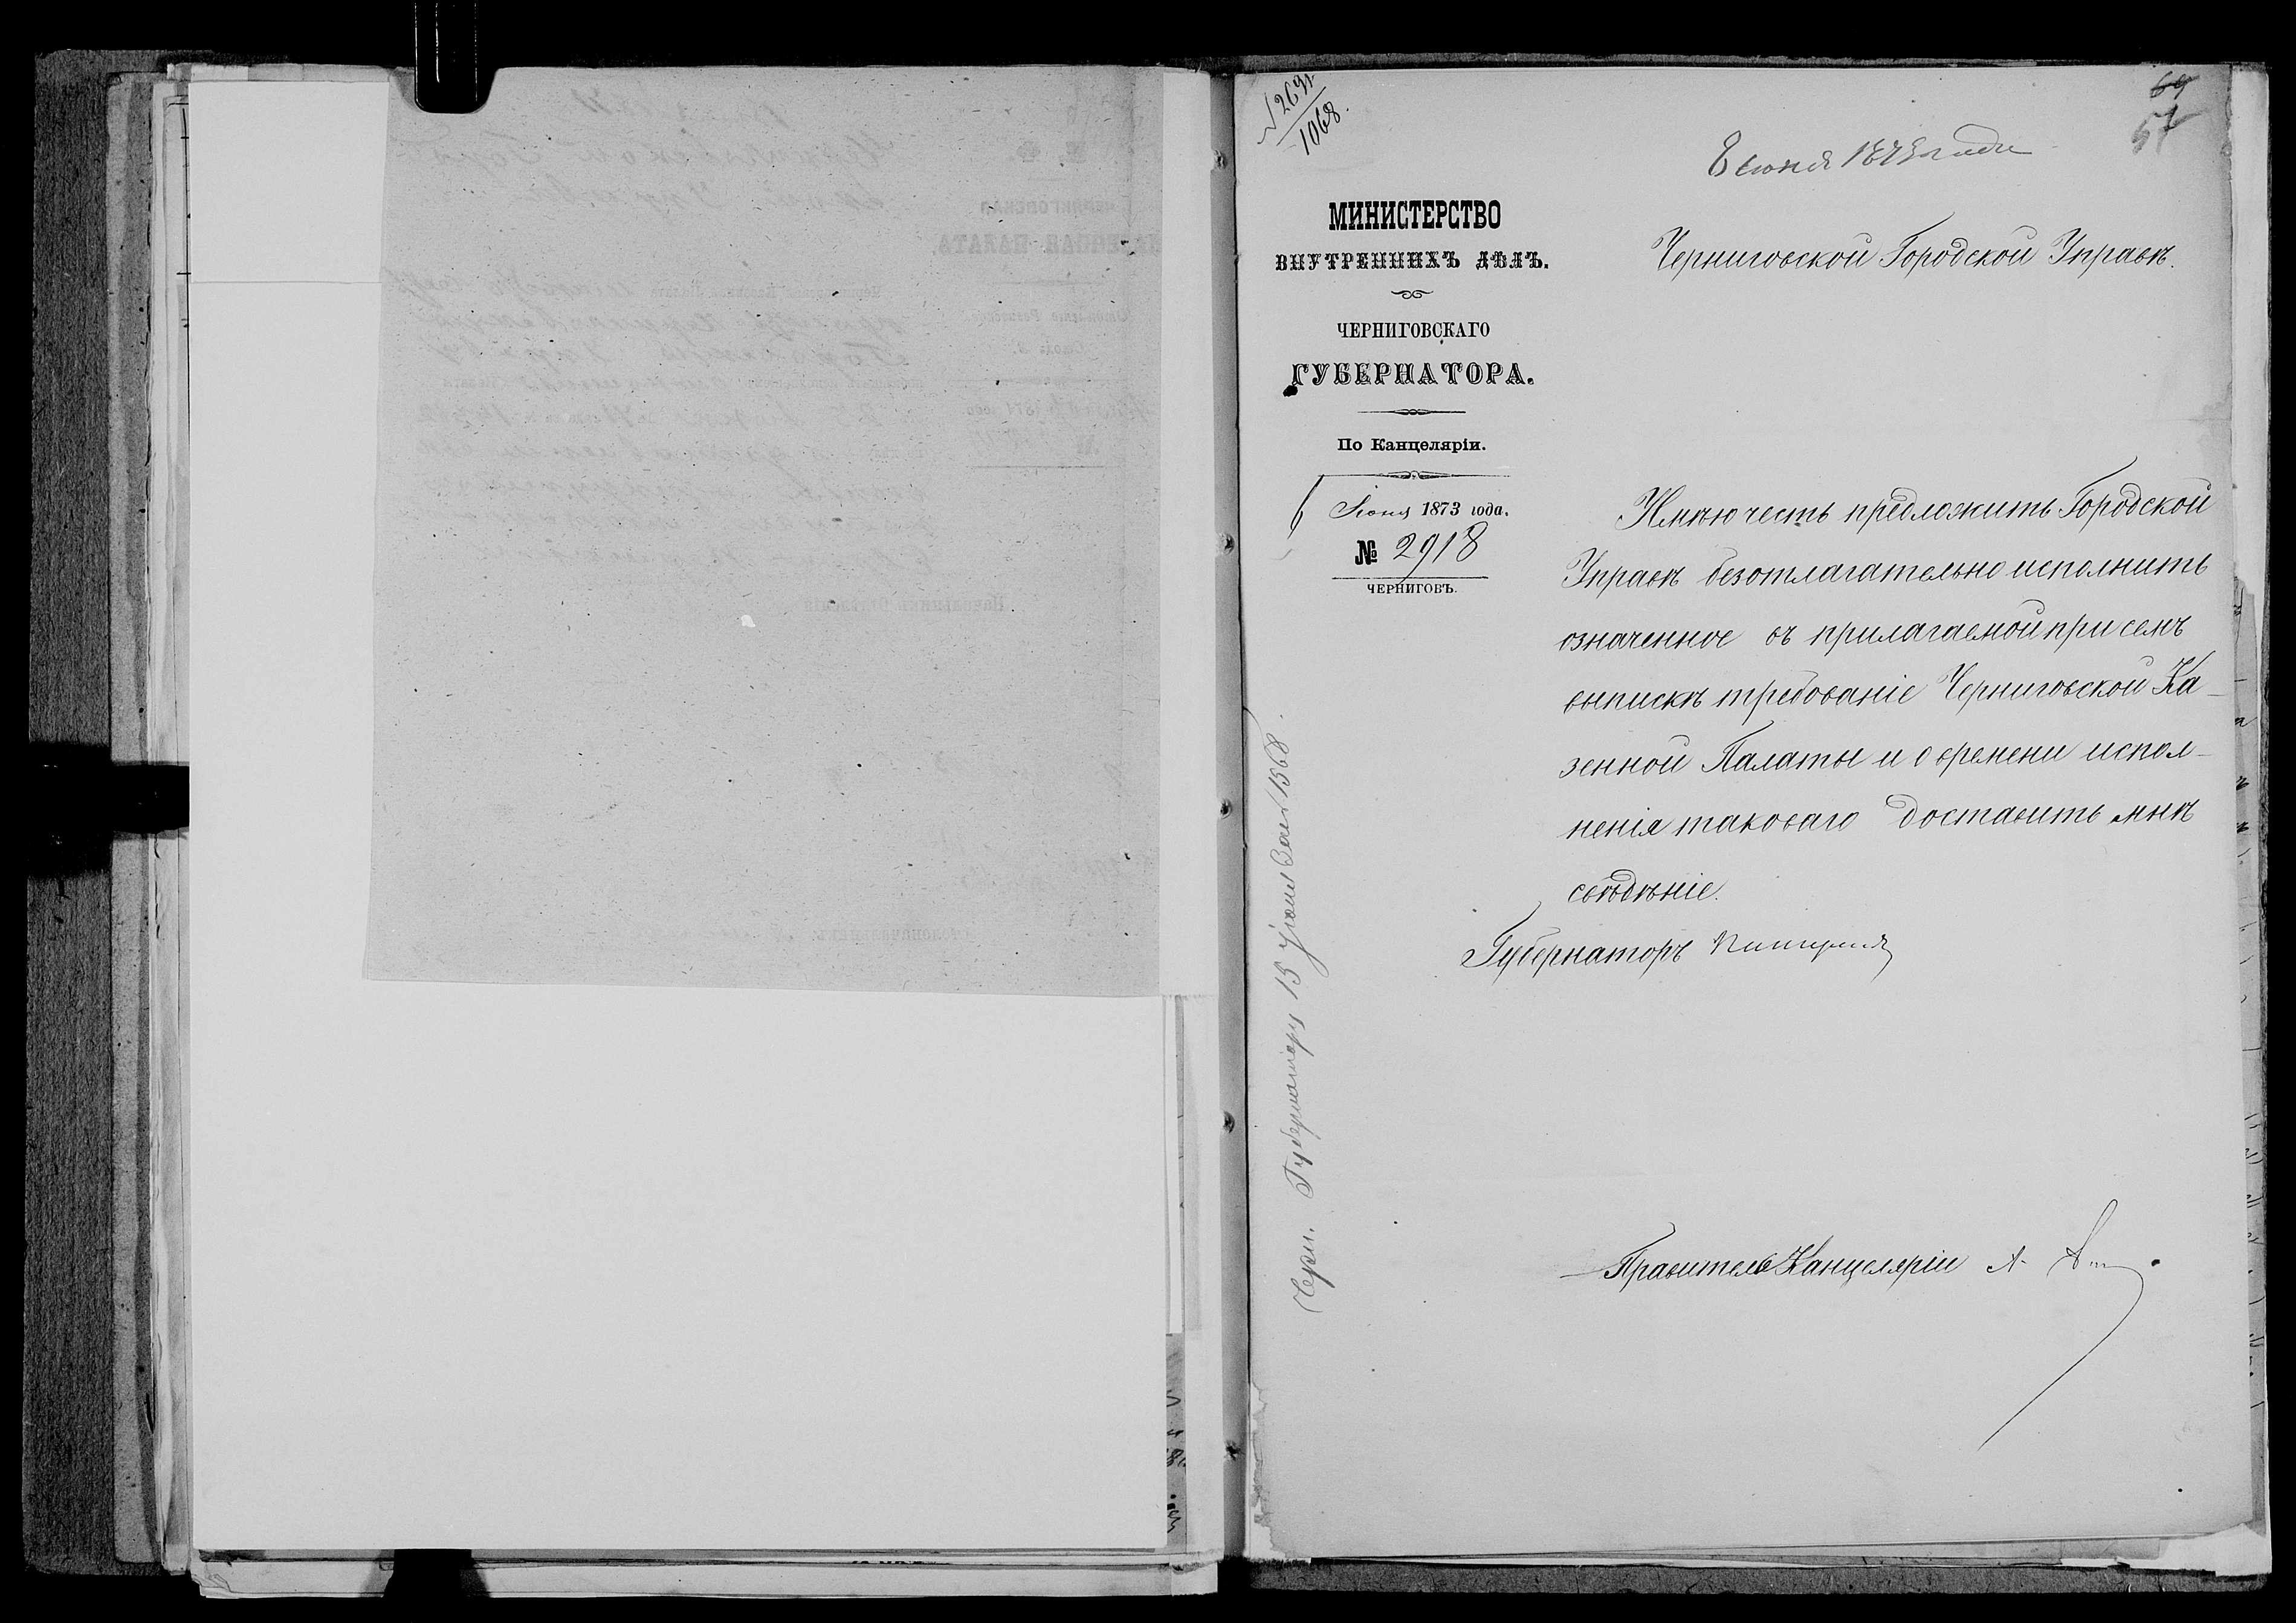 2691
1068.
69
57
8 июня 1873 года
МИНИСТЕРСТВО
ВНУТРЕННИХЪ ДѢЛЪ.
ЧЕРНИГОВСКАГО
ГУБЕРНАТОРА.
По Канцеляріи.
6 Іюня 1873 года.
№ 2918
ЧЕРНИГОВЪ.
Черниговской Городской Управѣ.
Имѣю честь предложить Городской
Управѣ безотлагательно исполнить
означенное въ прилагаемой при семъ
выпискѣ требованіе Черниговской Ка-
зенной Палаты и о времени испол-
ненія таковаго доставить мнѣ
свѣдѣніе.
Губернаторъ
Правитель Канцеляріи А.
Губернатору 15 Іюня За № 1568.